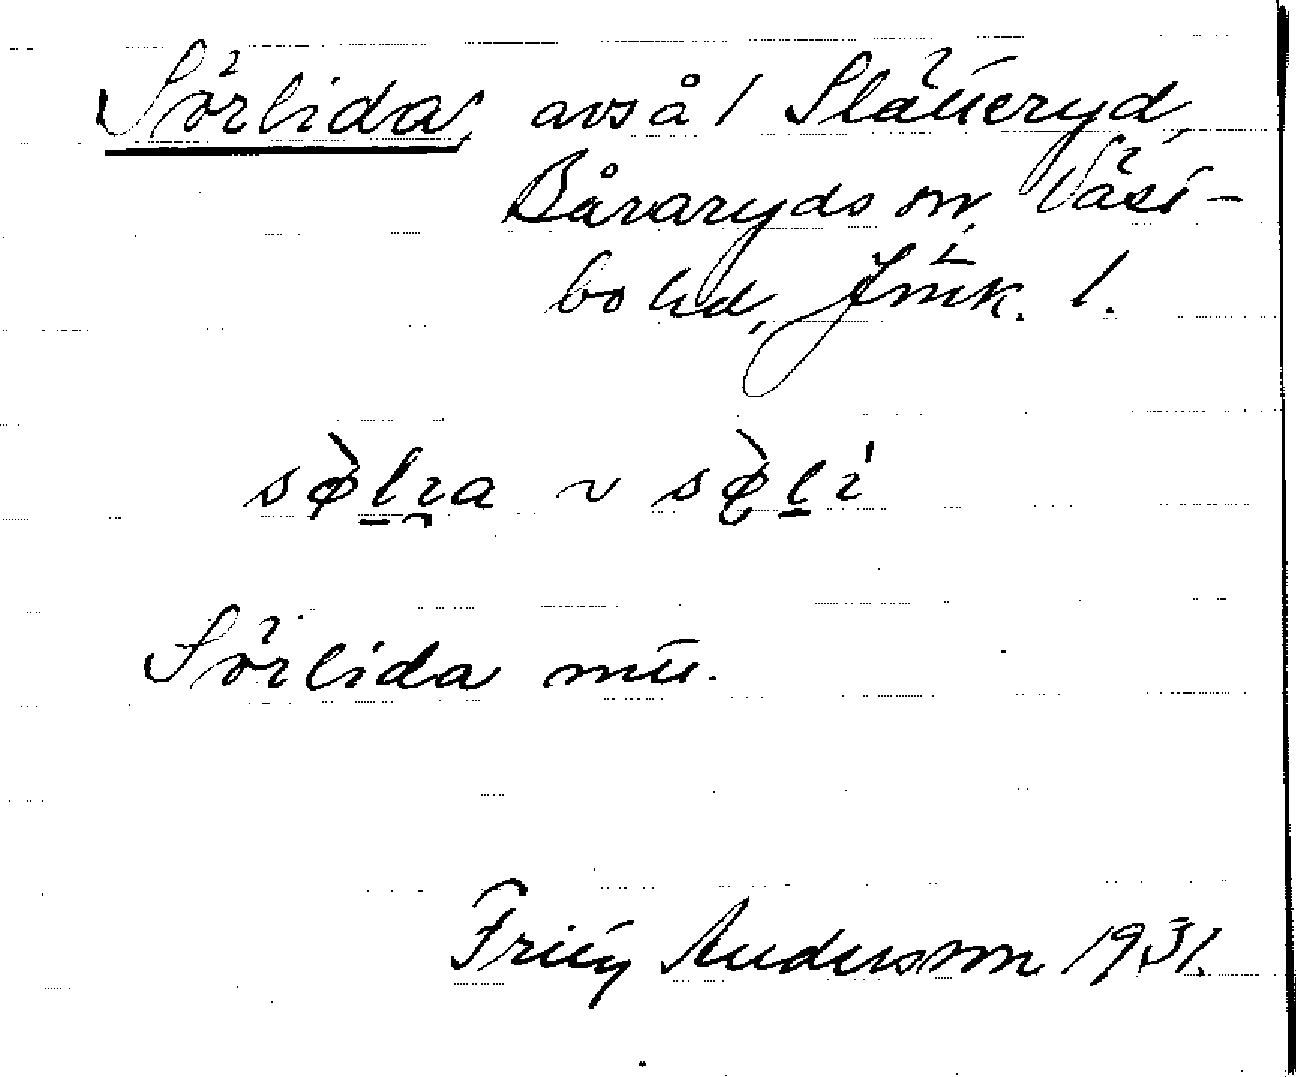 Sörlida, avs å / Slätteryd,
Båraryds sn, Väst-
bo hd, Jmk. l.
sø̀lıa ~ sø̀lı'
Sörlida mtl.
Fritz Andersson 1931.